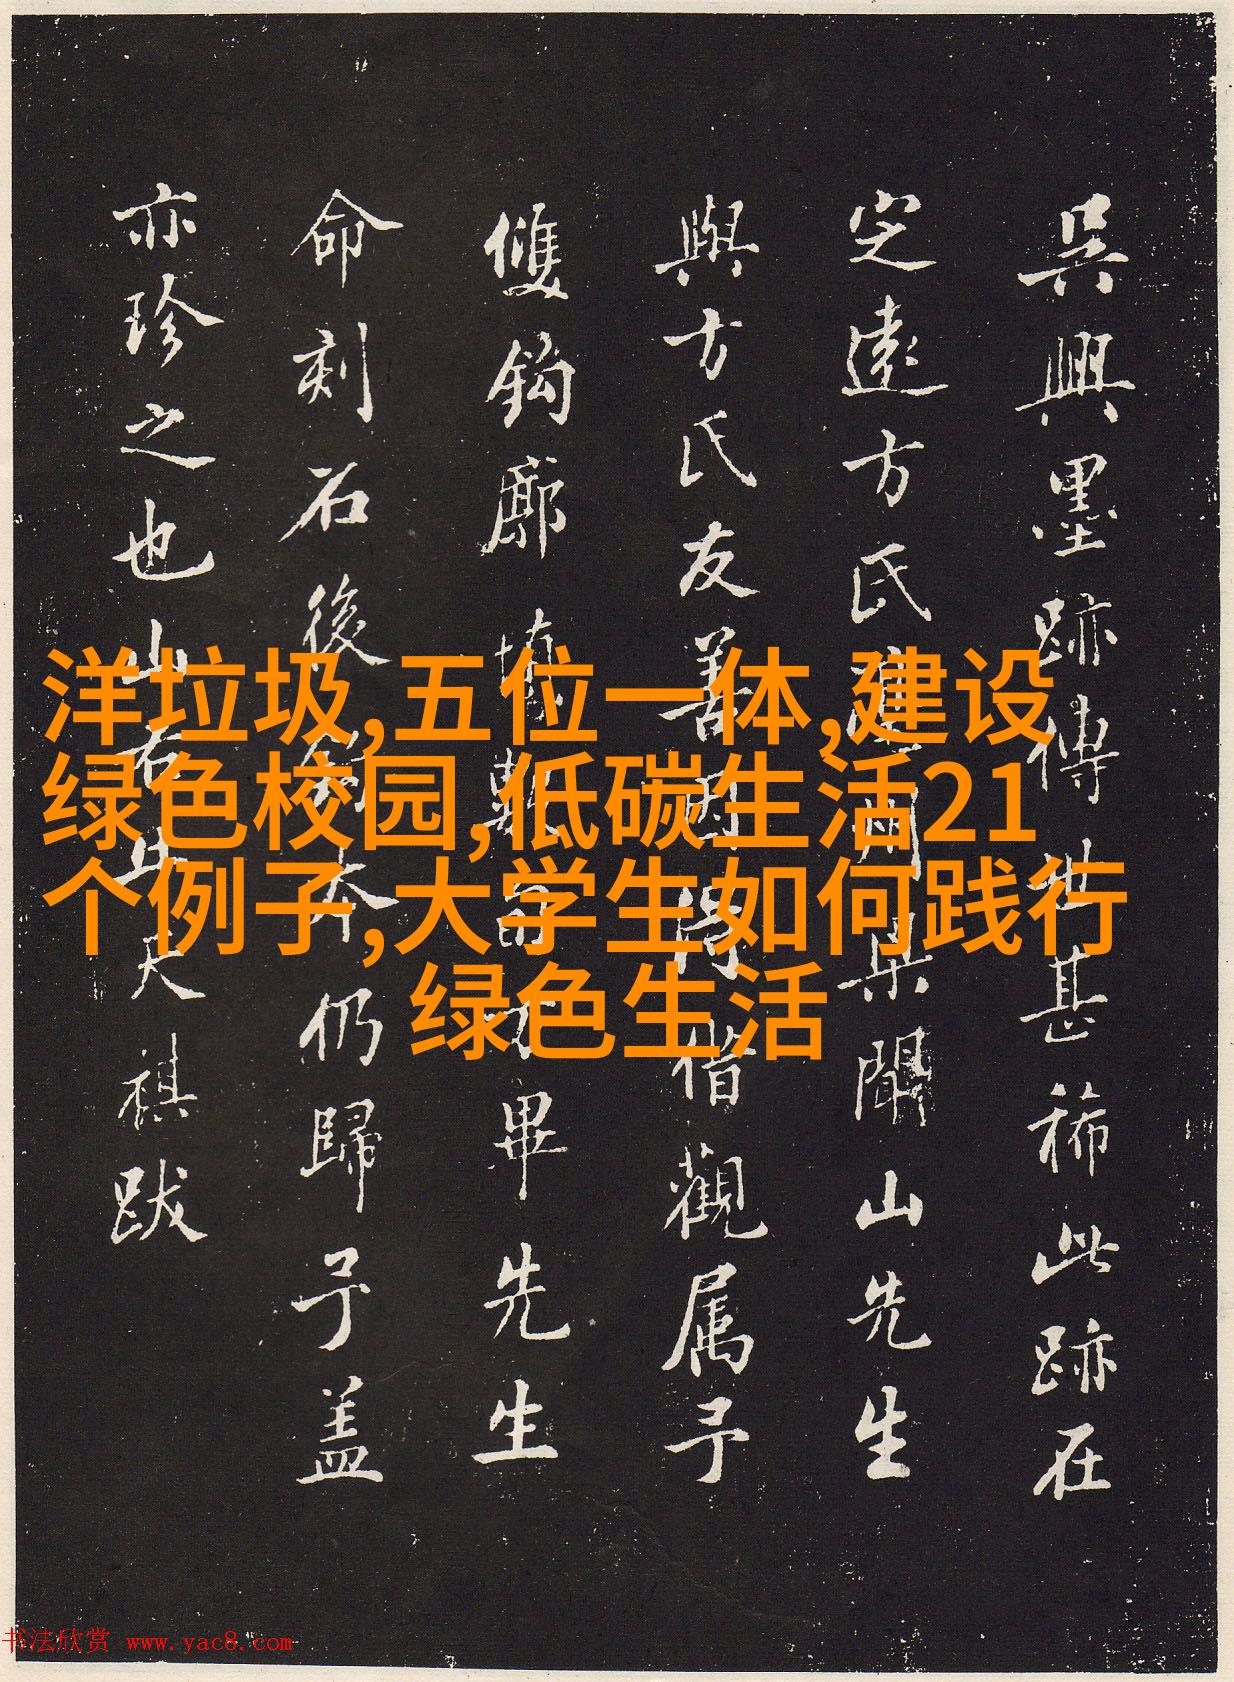 吳興墨跡傳世甚稀此跡在
定遠方氏梁聞山先生
與方氏友善因得借觀属予
雙鈎廓填畢先生
命刻石後仍歸予盖
亦珍之也山右祺跋
洋垃圾,五位一体,建设
绿色校园,低碳生活21
个例子,大学生如何践行
绿色生活
书法欣赏 www.yac8.com